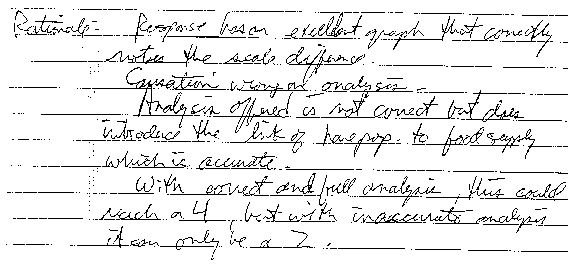 Rationale - Response has an excellent graph that correctly
notes the scale difference.
Causation wrong on analysis -
Analysis offered is not correct but does
introduce the link of hare pop. to food supply
which is accurate.
With correct and full analysis, this could
reach a 4, but with inaccurate analysis
it can only be a 2.